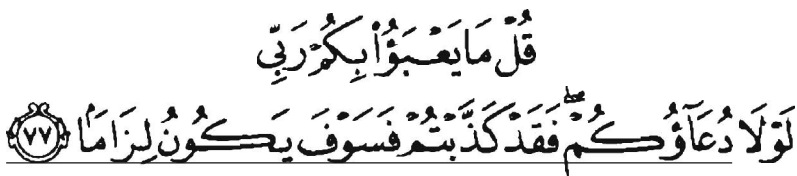 قُلْ مَا يَعْبَؤُا۟ بِكُمْ رَبِّى
لَوْلَا دُعَآؤُكُمْ ۖ فَقَدْ كَذَّبْتُمْ فَسَوْفَ يَكُونُ لِزَامًۢا ﴿٧٧﴾